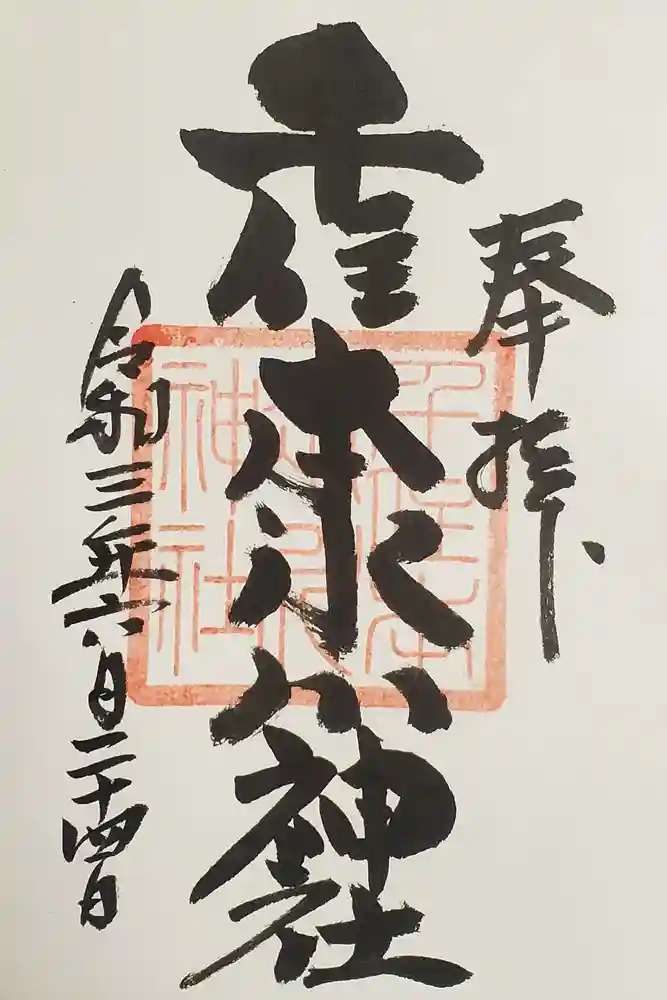 奉拝
千住本氷川神社
千住本
氷川
神社
令和三年六月二十四日